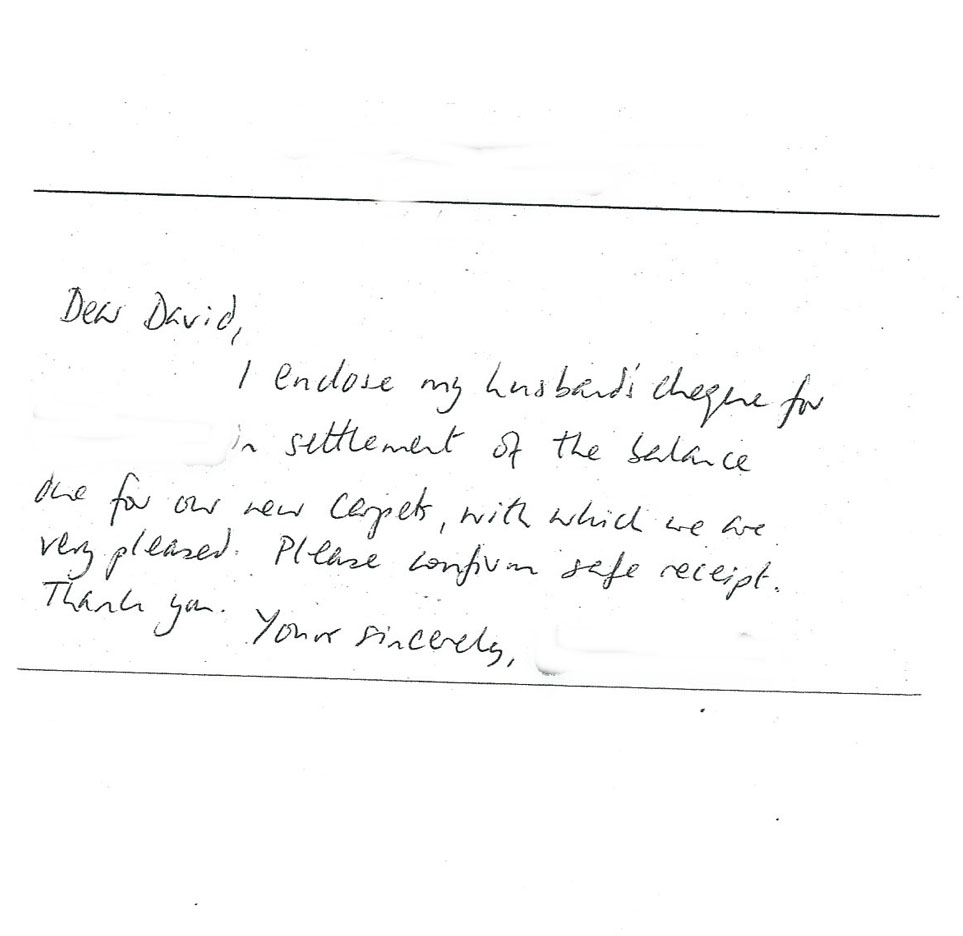 Dear David,
I enclose my husband's cheque for
in settlement of the balance
due for our new carpets, with which we are
very pleased. Please confirm safe receipt.
Thank you. Yours sincerely,